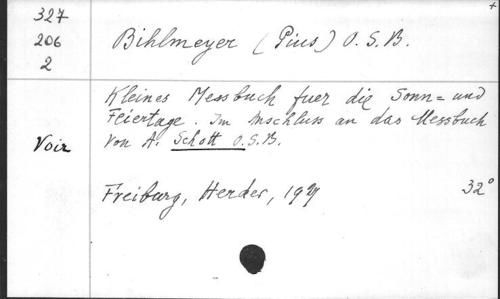 327
206
2
Bihlmeyer (Pius) O.S.B.
Kleines Messbuch fuer die Sonn= und
Feiertage. Im Anschluss an das Messbuch
Voir
von A. Schott O.S.B.
Freiburg, Herder,
32°